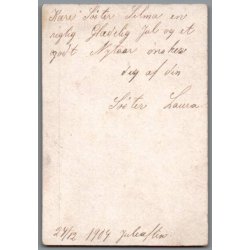 Kære Søster Selma en
rigtig Glædelig Jul og et
godt Nytaar ønskes
dig af din
Søster Laura
24/12 1904 Juleaften